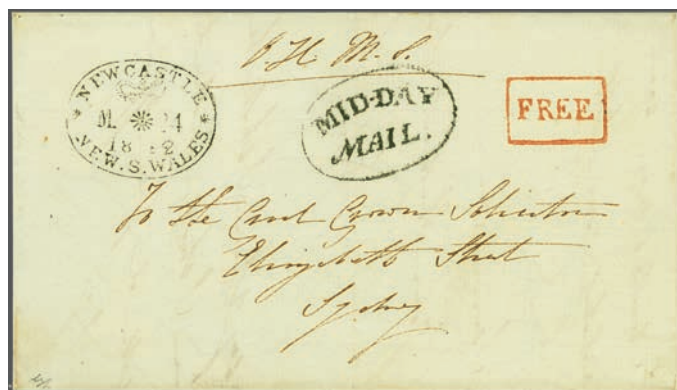 O H M S.
NEWCASTLE
M 24
NEW.S.WALES
MID-DAY
MAIL.
FREE
To the Crown Solicitor
Elizabeth Street
Sydney